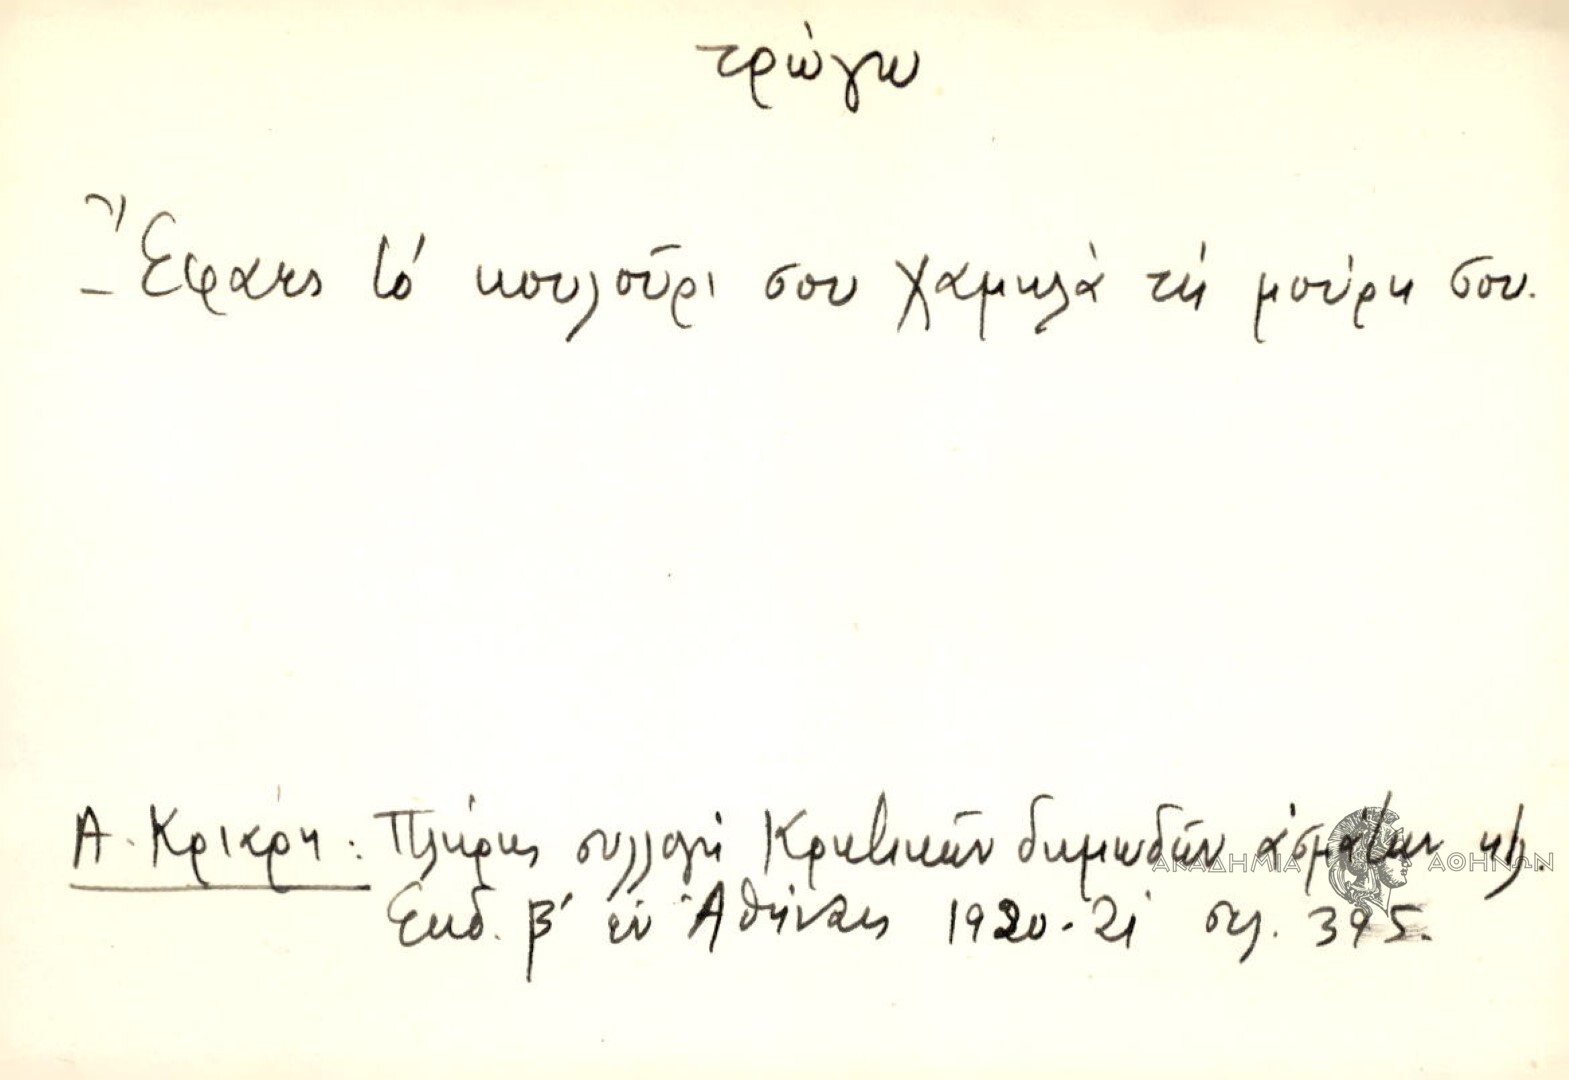 τρώγω
- Ἔφαες τό κουλοῦρι σου χαμηλὰ τή μούρη σου.
Α. Κριάρη: Πλήρης συλλογή Κρητικῶν δημωδῶν ἀσμάτων κτλ.
Ἐκδ. β' ἐν Ἀθήναις 1920-21 σελ. 395.
ΑΚΑΔΗΜΙΑ ΑΘΗΝΩΝ